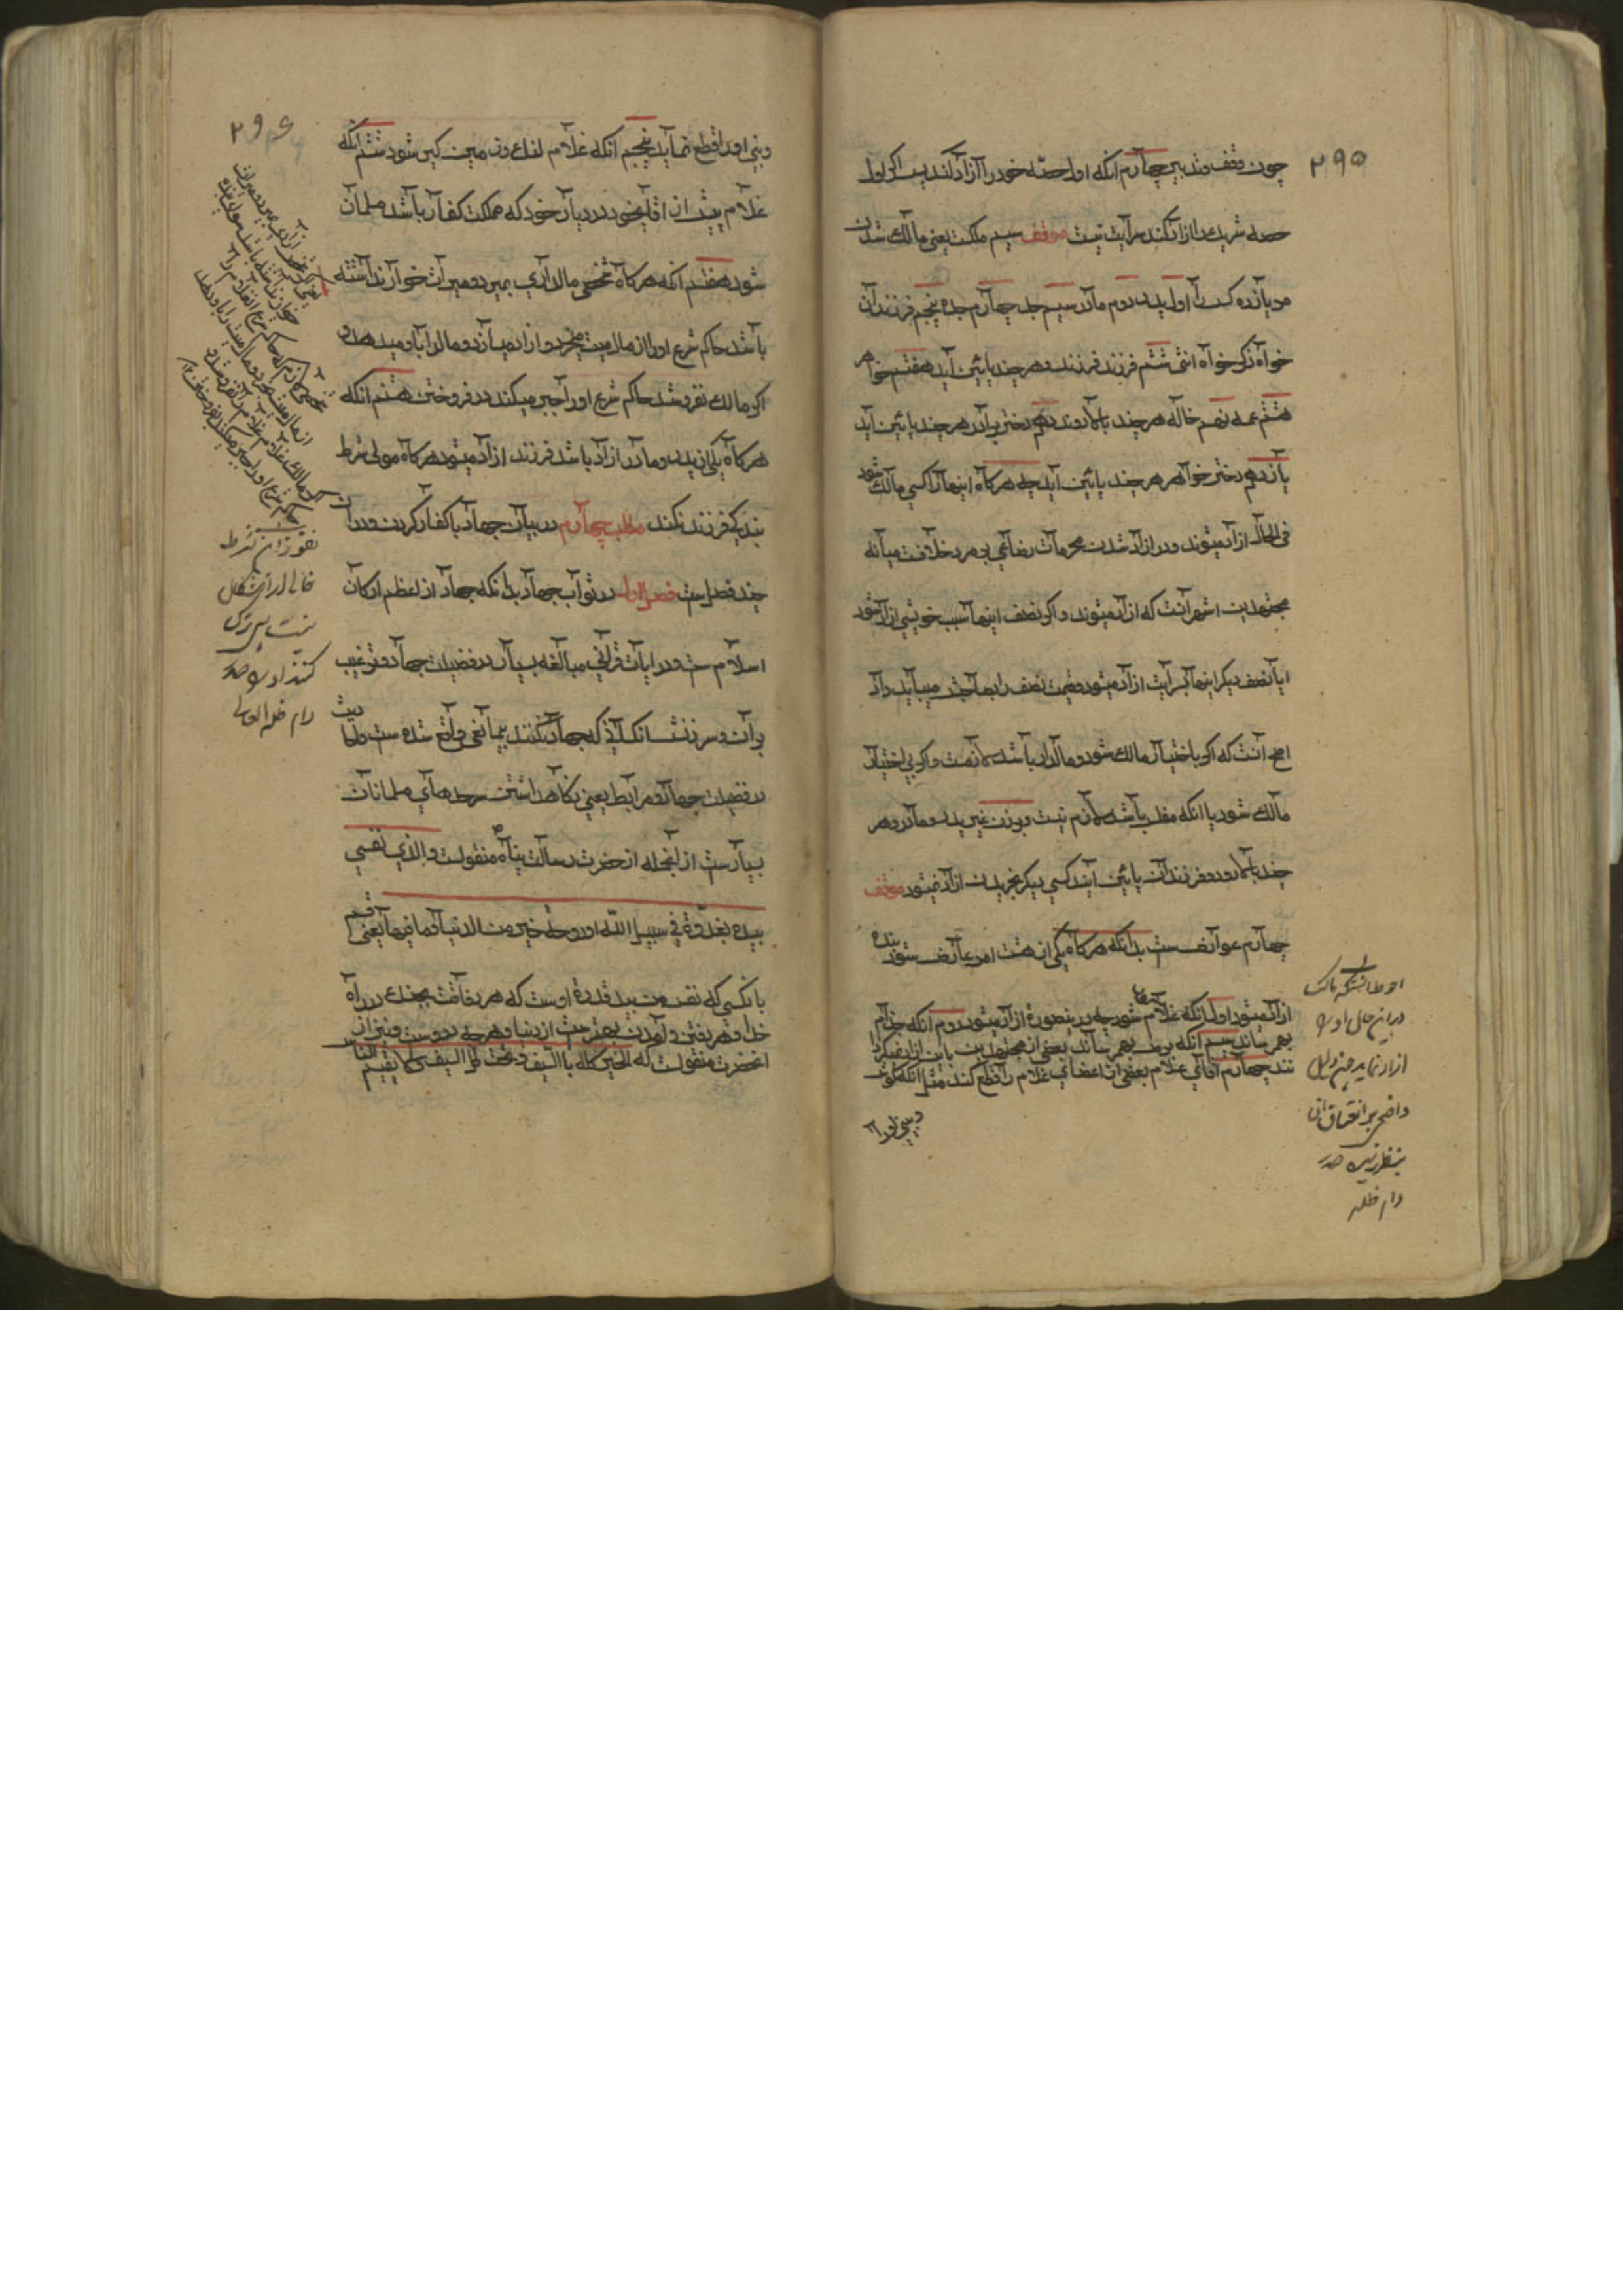 ۲۹۵
چون وقف و تدبیر چهارم آنکه اول حصّه خود را آزاد کند پس اگر اول
حصه شریک را آزاد کند سرایت نیست موقف سیم ملکت یعنی مالک شدن
مرد یازده کس را اول پدر دوم مادر سیم جد چهارم جده پنجم فرزندان
خواه ذکر خواه انثی ششم فرزند فرزند و هر چند پائین آید هفتم خواهر
هشتم عمه نهم خاله هر چند بالا روند دهم دختر برادر هر چند پائین آید
یازدهم دختر خواهر هر چند پائین آید چه هرگاه اینها را کسی مالک شود
فی الحال آزاد میشوند و در آزاد شدن محرمات رضاعی بر مرد خلافست میانه
مجتهدین اشهر آنست که آزاد میشوند و اگر نصف اینها سبب خویشی آزاد شود
ایا نصف دیگر اینها بسرایت آزاد میشود و قیمت نصف را بصاحبش میباید داد
اصح آنست که اگر باختیار مالک شود و مالدار باشد لازمست و اگر بی اختیار
مالک شود یا آنکه مفلس باشد لازم نیست و بر زن غیر پدر و مادر و هر
چند بالا رود و فرزندان پائین آیند کسی دیگر بخریدن آزاد نمیشود موقف
چهارم عوارض ست بدانکه هرگاه یکی از هشت امر عارض شود بنده
آزاد میشود اول آنکه غلام کور شود چه درینصورة آزاد میشود دوم آنکه جذام
بهم رساند سیم آنکه برص بهم رساند بعضی از مجتهدین باین آزاد نمیکردا
نند چهارم آقای غلام بعضی از اعضای غلام را قطع کند مثل آنکه گوش
و بینی او را
احوط انستکه مالک
در این حال او را
ازاد نماید
بر انعتاق ان
بنظر نرسیده صدر
دام ظله
۲۹۶
و بینی او را قطع نماید پنجم آنکه غلام لنک و زمین گیر شود ششم آنکه
غلام پیش از اقای خود در دیار خود که مملکت کفار باشد مسلمان
شود هفتم آنکه هرگاه شخصی مالداری بمیرد و میراث خوار نداشته
باشد حاکم شرع او را از مال میت میخرد و آزاد میسازد و مال را باو میدهد و
اگر مالک نفروشد حاکم شرع او را جبر میکند در فروختن هشتم آنکه
هرگاه یکی از پدر و مادر آزاد باشد فرزند آزاد میشود هرگاه مولی شرط
بندگی فرزند نکند مطلب چهارم در بیان جهاد با کفار کردن و در آن
چند فصل ست فصل اول در ثواب جهاد بدانکه جهاد از اعظم ارکان
اسلام ست و در ایات قرآنی مبالغه بسیار در فضیلت جهاد و ترغیب
بر آن و سرزنش آنکسانی که جهاد نکنند بیمانعی واقع شده ست و احادیث
در فضیلت جهاد و مرابط یعنی نگاهداشتن سرحدهای مسلمانان
بسیارست از آنجمله از حضرت رسالت پناه منقولست والذی نفسی
بیده لغدوة فی سبیل اللّه او روحة خیر من الدنیا و ما فیها یعنی قسم
بآنکسی که نفس من بید قدرة اوست که هر بامداد بجنک در راه
خدا و هر رفتن و آمدن بهترست از دنیا و هر چه دروست و نیز از
انحضرت منقولست که الخیر کله بالسّیف و تحت ظل السیف و لا یقیم الناس
شرط
خالی از اشکال
نیست پس ترک
کنند او را صدر
دام ظله العالی